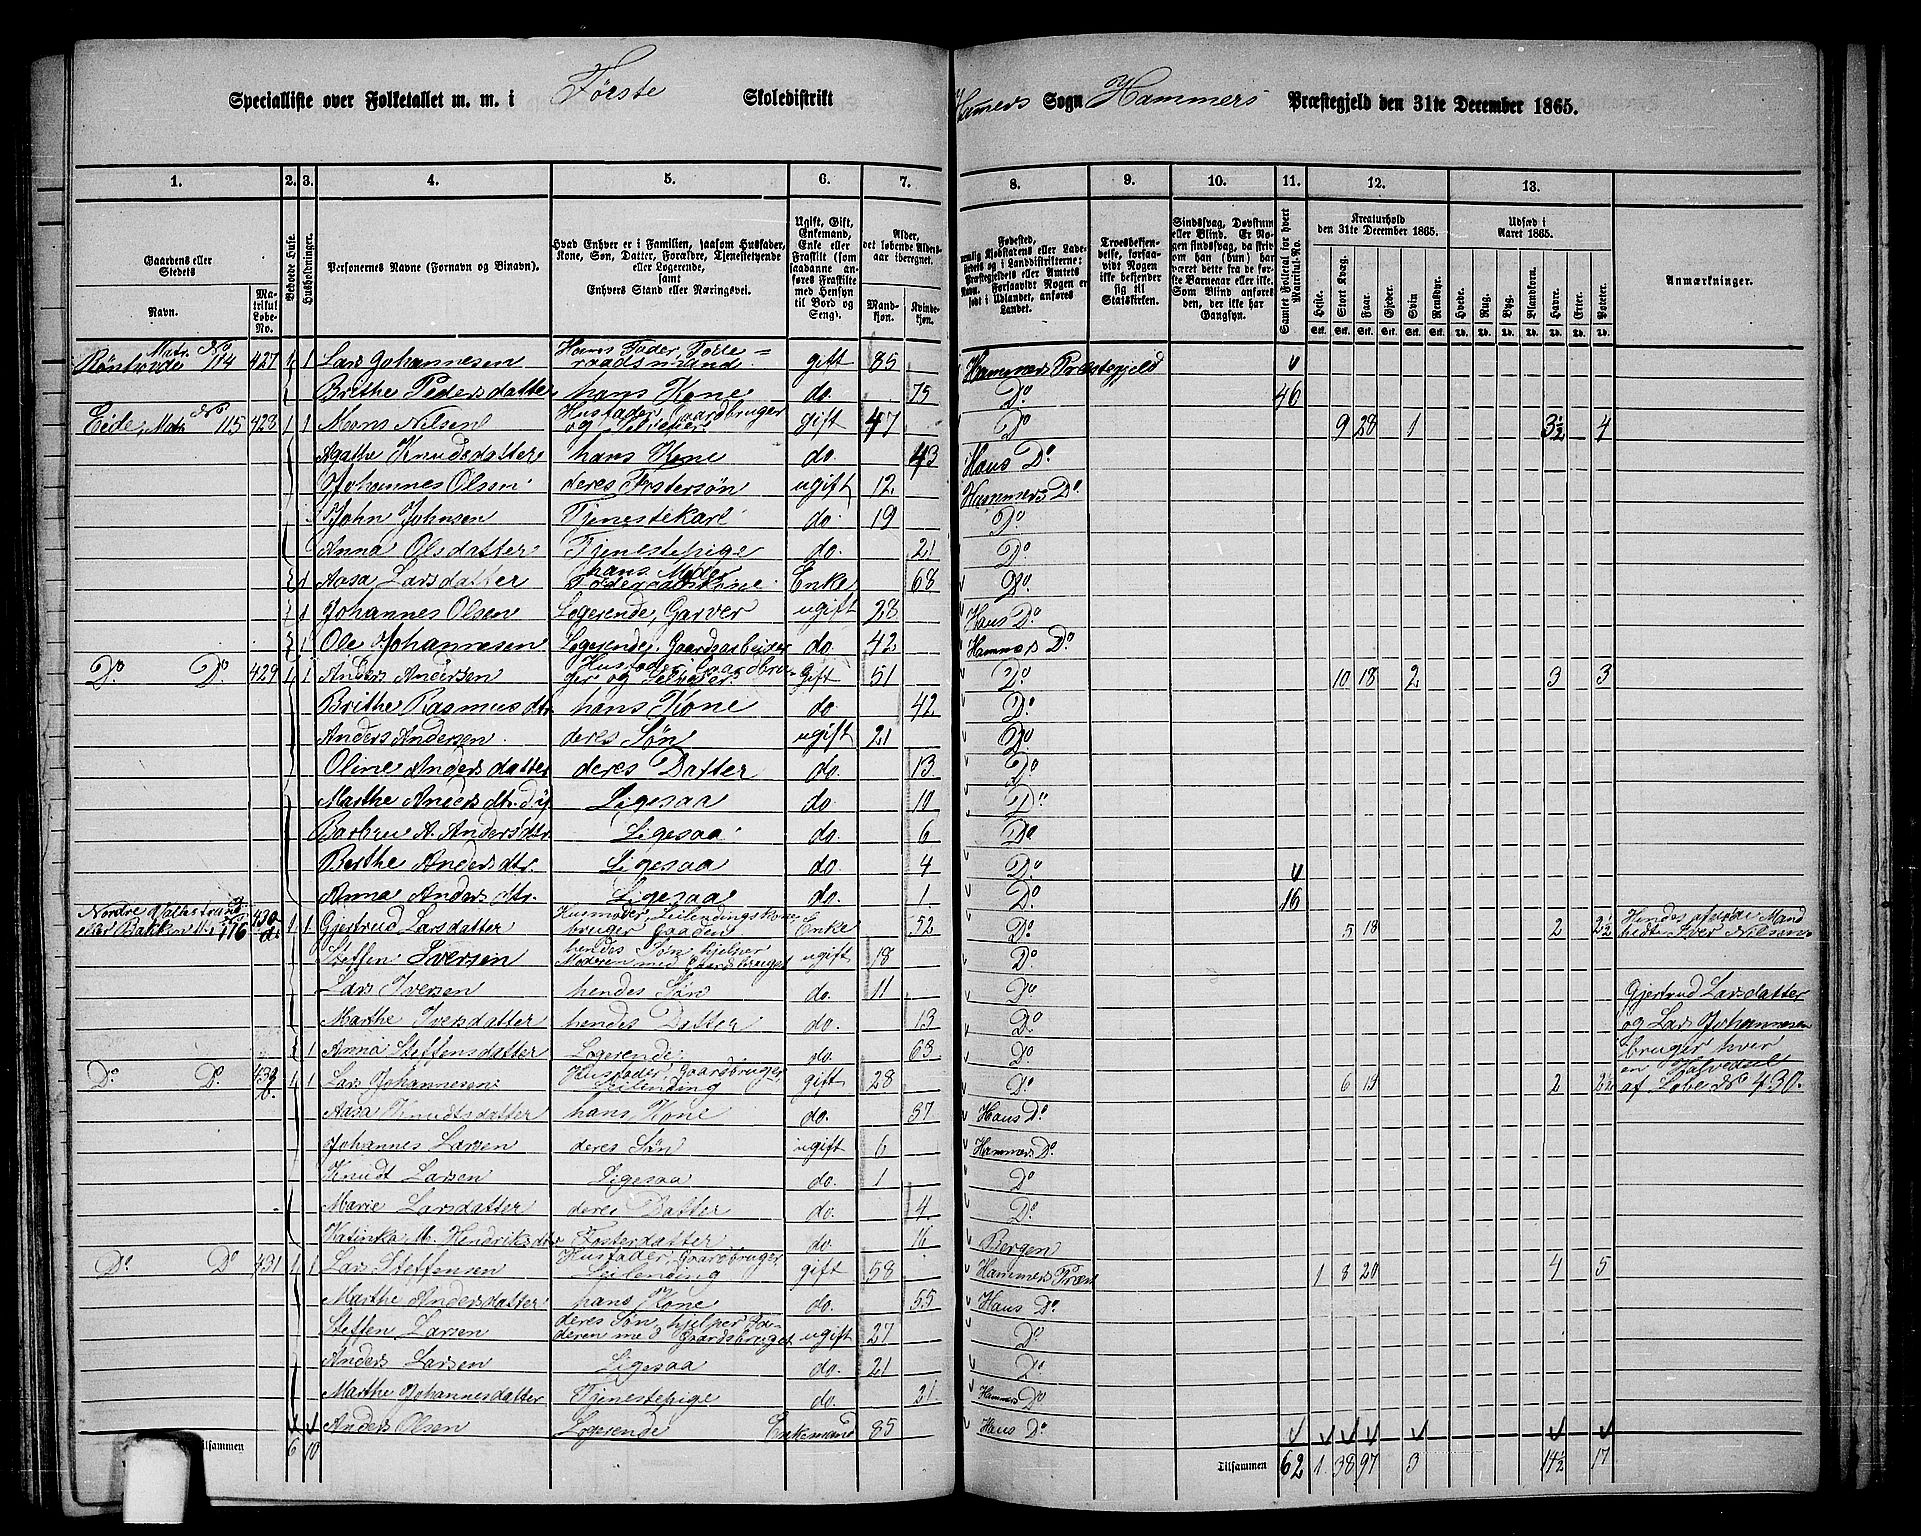 Specialliste over Folketallet m. m. i Første Skoledistrikt Hammers Sogn Hammers Præstegjeld den 31te December 1865.
1. 2. 3. 4. 5. 6. 7. 8. 9. 10. 11. 12. 13.
Gaardens eller Stedets
Navn.
Matrikul Løbe-No.
Beboede Huse.
Husholdninger.
Personernes Navne (Fornavn og Binavn).
Hvad Enhver er i Familien, saasom Husfader, Kone, Søn, Datter, Forældre, Tjenestetyende eller Logerende, samt Enhvers Stand eller Næringsvei.
Ugift, Gift, Enkemand, Enke eller Fraskilt (som saadanne anføres Fraskilte med Hensyn til Bord og Seng).
Alder, det løbende Aldersaar iberegnet.
Mandkjøn. Kvindekjøn.
Troesbekjendelse, forsaavidt Nogen ikke bekjender sig til Statskirken.
Samlet Folketal for hvert Matrikul-No.
Kreaturhold den 31te December 1865.
Heste. Stort Kvæg. Faar. Gjeder. Svin Rensdyr.
Udsæd i Aaret 1865.
Hvede. Rug. Byg. Blandkorn. Havre. Erter. Poteter.
Anmærkninger.
Matr. No 114 427 1 1 Lars Johannesen Hans Fader, Føderaadsmand gift 85 Hammers Præstegjeld
Brithe Pedersdatter hans Kone do. 75 Do 46
Eide, Matr. No 115 428 1 1 Mons Nilsen Husfader, Gaardbruger og Selveier gift 47 Do 9 28 1 3½ 4
Agathe Knudsdatter hans Kone do. 43 Haus Do
Johannes Olsen deres Fostersøn ugift 12 Hammers Do
John Johnsen Tjenestekarl do. 19 Do
Anna Olsdatter Tjenestepige do. 21 Do
1 Aasa Larsdatter hans Moder Føderaadskone Enke 68 Do
1 Johannes Olsen Logerende, Garver ugift 28 Haus Do
1 Ole Johannesen Logerende, Gaardsarbeider do. 42 Hammers Do
Do Do 429 1 1 Anders Andersen Husfader, Gaardbruger og Selveier Gift 51 Do 10 18 2 3 3
Brithe Rasmusdtr. hans Kone do. 42 Do
Anders Andersen deres Søn ugift 21 Do
Oline Andersdatter deres Datter do. 13 Do
Marthe Andersdtr. Ligesaa do. 10 Do
A. Andersdtr. Ligesaa do. 6 Do
Berthe Andersdtr. Ligesaa do. 4 Do
Anna Andersdtr. Ligesaa do. 1 Do 16
Nordre eller Bakken 116 430 a. 1 1 Gjertrud Larsdatter Husmoder, Leilendingskone bruger Gaarden Enke 52 Do 5 18 2 2½ Hendes afdøde Mand hedte Iver Nilsen
Steffen Iversen hendes Søn, hjelper Moderen med Gaardsbruget ugift 18 Do
Lars Iversen hendes Søn do. 11 Do
Marthe Iversdatter hendes Datter do. 13 Do
1 Anna Steffensdatter Logerende do. 63 Do
Do Do 430 b. 1 1 Lars Johannesen Husfader, Gaardbruger, Leilending gift 28 Do 6 19 2 2½ Gjertrud Larsdatter og Lars Johannesen bruger hver en Halvedeel af Løbe No 430.
Aasa Knudtsdatter hans Kone do. 37 Haus Do
Johannes Larsen deres Søn ugift 6 Hammers Do
Knudt Larsen Ligesaa do. 1 Do
Marie Larsdatter deres Datter do. 4 Do
Katinka M. Hendriksdtr Fosterdatter do 16 Bergen
Do Do 431 1 1 Lars Steffensen Husfader, Gaardbruger, Leilending gift 58 Hammers Præst 1 8 20 4 5
Marthe Andersdatter hans Kone do. 55 Haus Do
Steffen Larsen deres Søn, hjelper Faderen med Gaardsbruget ugift 27 Do
Anders Larsen Ligesaa do. 21 Do
Marthe Johannesdatter Tjenestepige do. 21 Hammers Do
Anders Olsen Logerende Enkemand 85 Haus Do
Tilsammen 6 10 Tilsammen 62 1 38 97 3 14½ 17